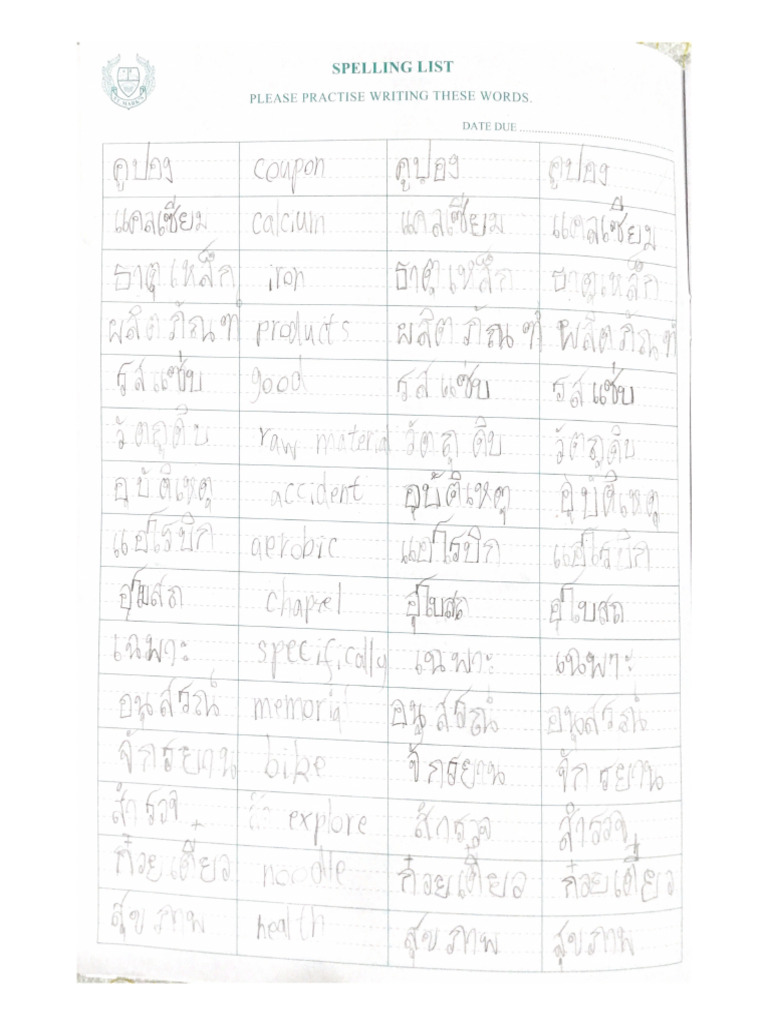 SPELLING LIST
PLEASE PRACTISE WRITING THESE WORDS.
DATE DUE ..............................
คูปอง coupon คูปอง คูปอง
แคลเซียม calcium แคลเซียม แคลเซียม
ธาตุเหล็ก iron ธาตุเหล็ก ธาตุเหล็ก
ผลิตภัณฑ์ products ผลิตภัณฑ์ ผลิตภัณฑ์
รสแซ่บ good รสแซ่บ รสแซ่บ
วัตถุดิบ raw material วัตถุดิบ วัตถุดิบ
อุบัติเหตุ accident อุบัติเหตุ อุบัติเหตุ
แอโรบิก aerobic แอโรบิก แอโรบิก
อุโบสถ chapel อุโบสถ อุโบสถ
เฉพาะ specifically เฉพาะ เฉพาะ
อนุสรณ์ memorial อนุสรณ์ อนุสรณ์
จักรยาน bike จักรยาน จักรยาน
สำรวจ explore สำรวจ สำรวจ
ก๋วยเตียว noodle ก๋วยเตี๋ยว ก๋วยเตี๋ยว
สุขภาพ health สุขภาพ สุขภาพ